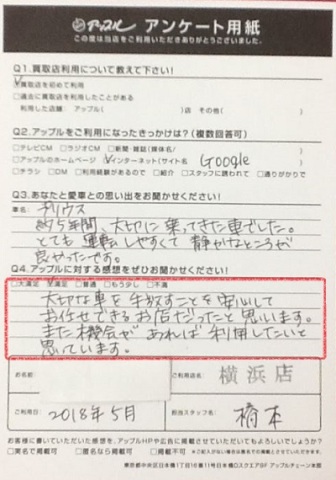 アップル アンケート用紙
この度は当店をご利用いただきありがとうございました。
Q1.買取店利用について教えて下さい!
☑買取店を初めて利用
□過去に買取店を利用したことがある
利用した店舗・アップル( )店 その他( )
Q2.アップルをご利用になったきっかけは?(複数回答可)
□テレビCM □ラジオCM □新聞・雑誌(媒体名)
□アップルのホームページ ☑インターネット(サイト名 Google
□チラシ □DM □利用経験があるので □紹介 □スタッフに誘われて □通りがかりで
Q3.あなたと愛車との思い出をお聞かせください!
車名: プリウス
約5年間、大切に乗ってきた車でした。
とても運転しやすくて静かなところが
良かったです。
Q4.アップルに対する感想をぜひお聞かせください!
□大満足 ☑満足 □普通 □もう少し □不満
大切な車を手放すことを安心して
お任せできるお店だったと思います。
また機会があれば利用したいと
思っています。
お名前
ご利用店名: 横浜店
ご利用日: 2018年5月
担当スタッフ名: 橋本
お客様に書いていただいた感想を、アップルHPや広告に掲載させていただいてもよろしいでしょうか?
□実名で掲載可 □匿名なら掲載可 □掲載不可
※ご記入がない場合は匿名での掲載とさせていただきます。
東京都中央区日本橋1丁目16番11号日本橋Dスクエア5F アップルチェーン本部